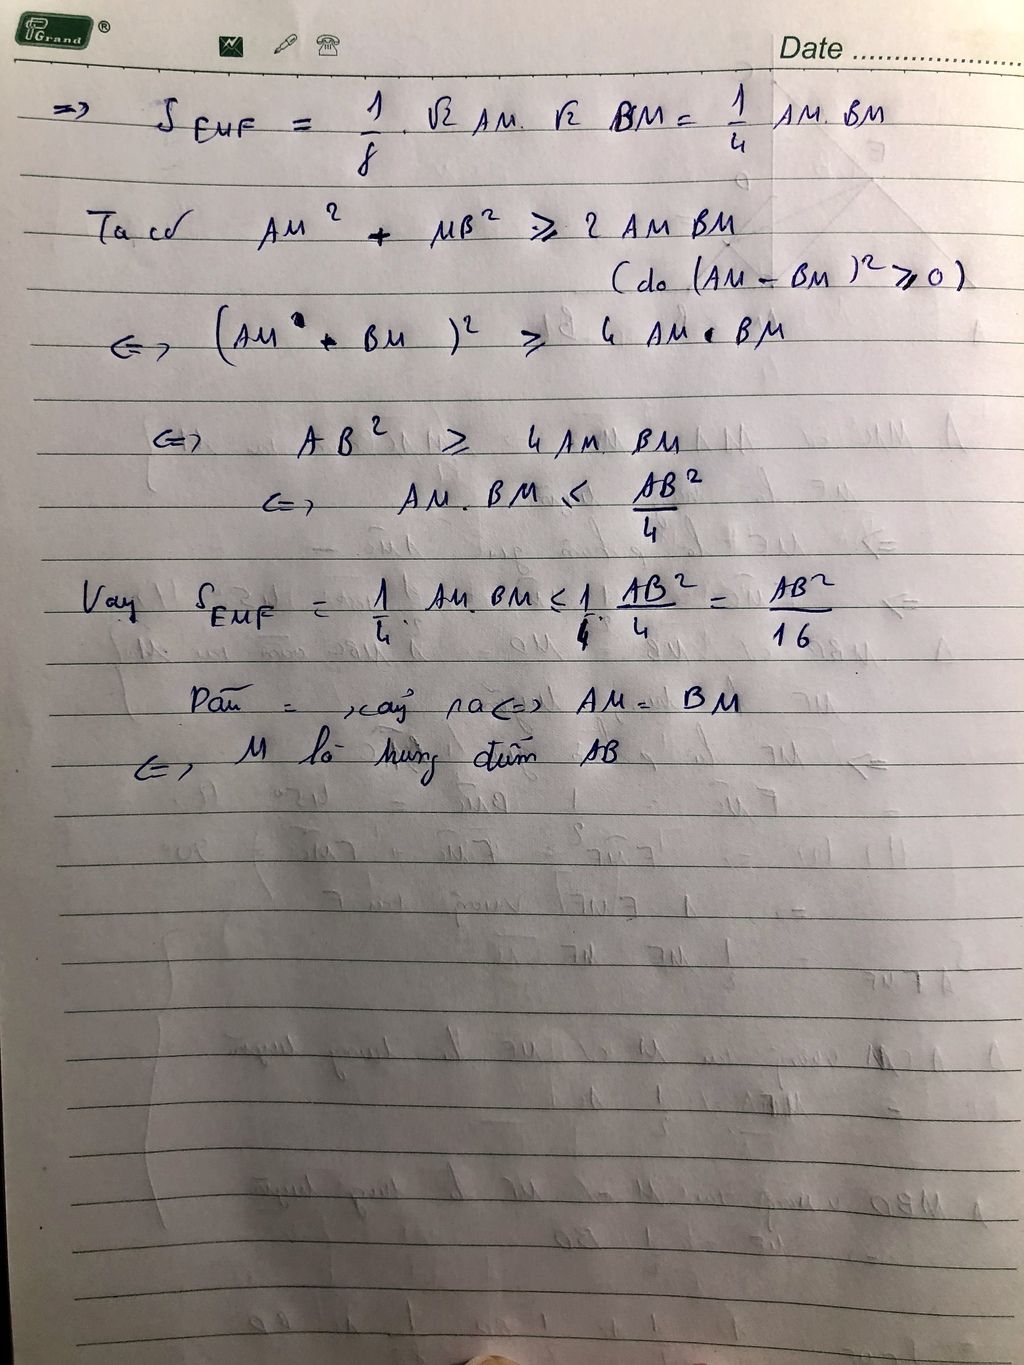 Grand ®
Date ........................
=> S EMF = 1/8 . √2 AM . √2 BM = 1/4 AM . BM
Ta có AM² + MB² ⩾ 2 AM BM
(do (AM - BM)² ⩾ 0)
<=> (AM + BM)² ⩾ 4 AM . BM
<=> AB² ⩾ 4 AM . BM
<=> AM . BM ⩽ AB²/4
Vậy S EMF = 1/4 . AM . BM ⩽ 1/4 . AB²/4 = AB²/16
Dấu = xảy ra <=> AM = BM
<=> M là trung điểm AB